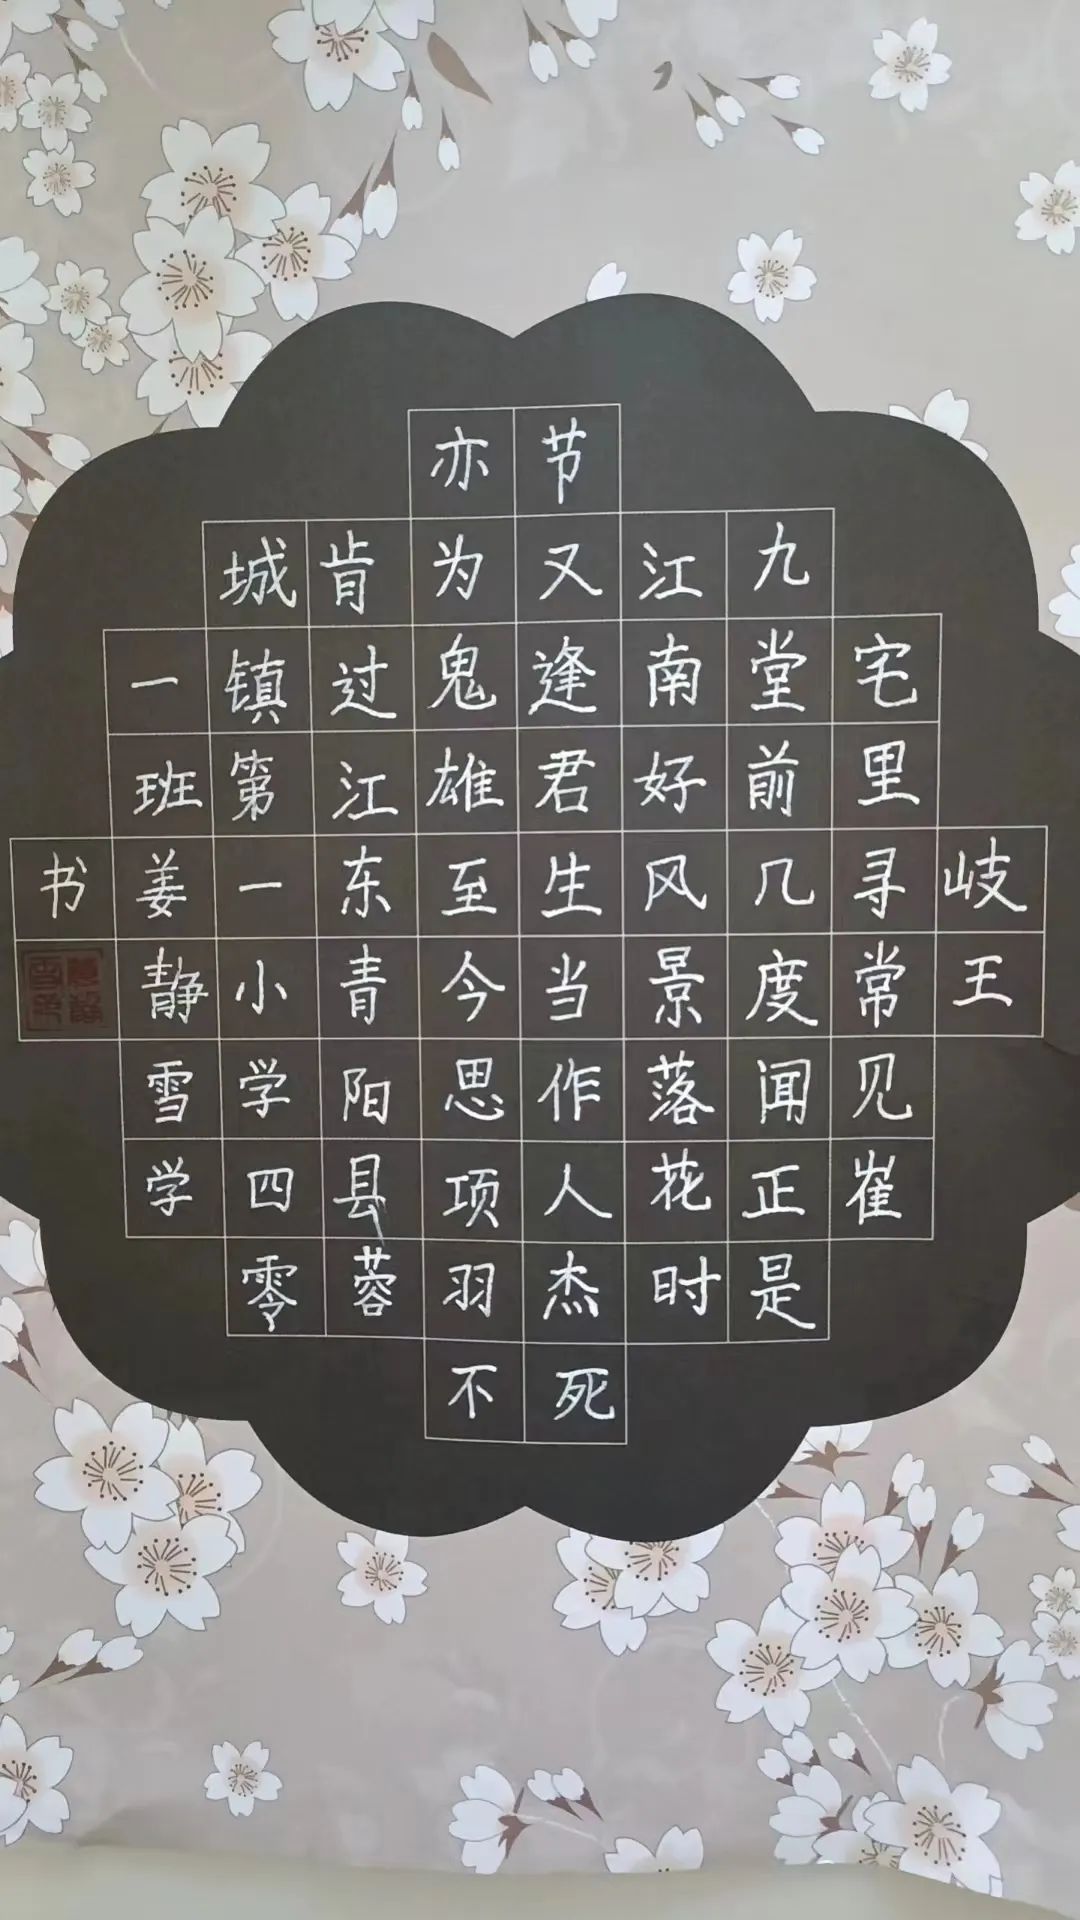 岐王
宅里寻常见崔
九堂前几度闻正是
江南好风景落花时
节又逢君生当作人杰死
亦为鬼雄至今思项羽不
肯过江东青阳县蓉
城镇第一小学四零
一班姜静雪学
书